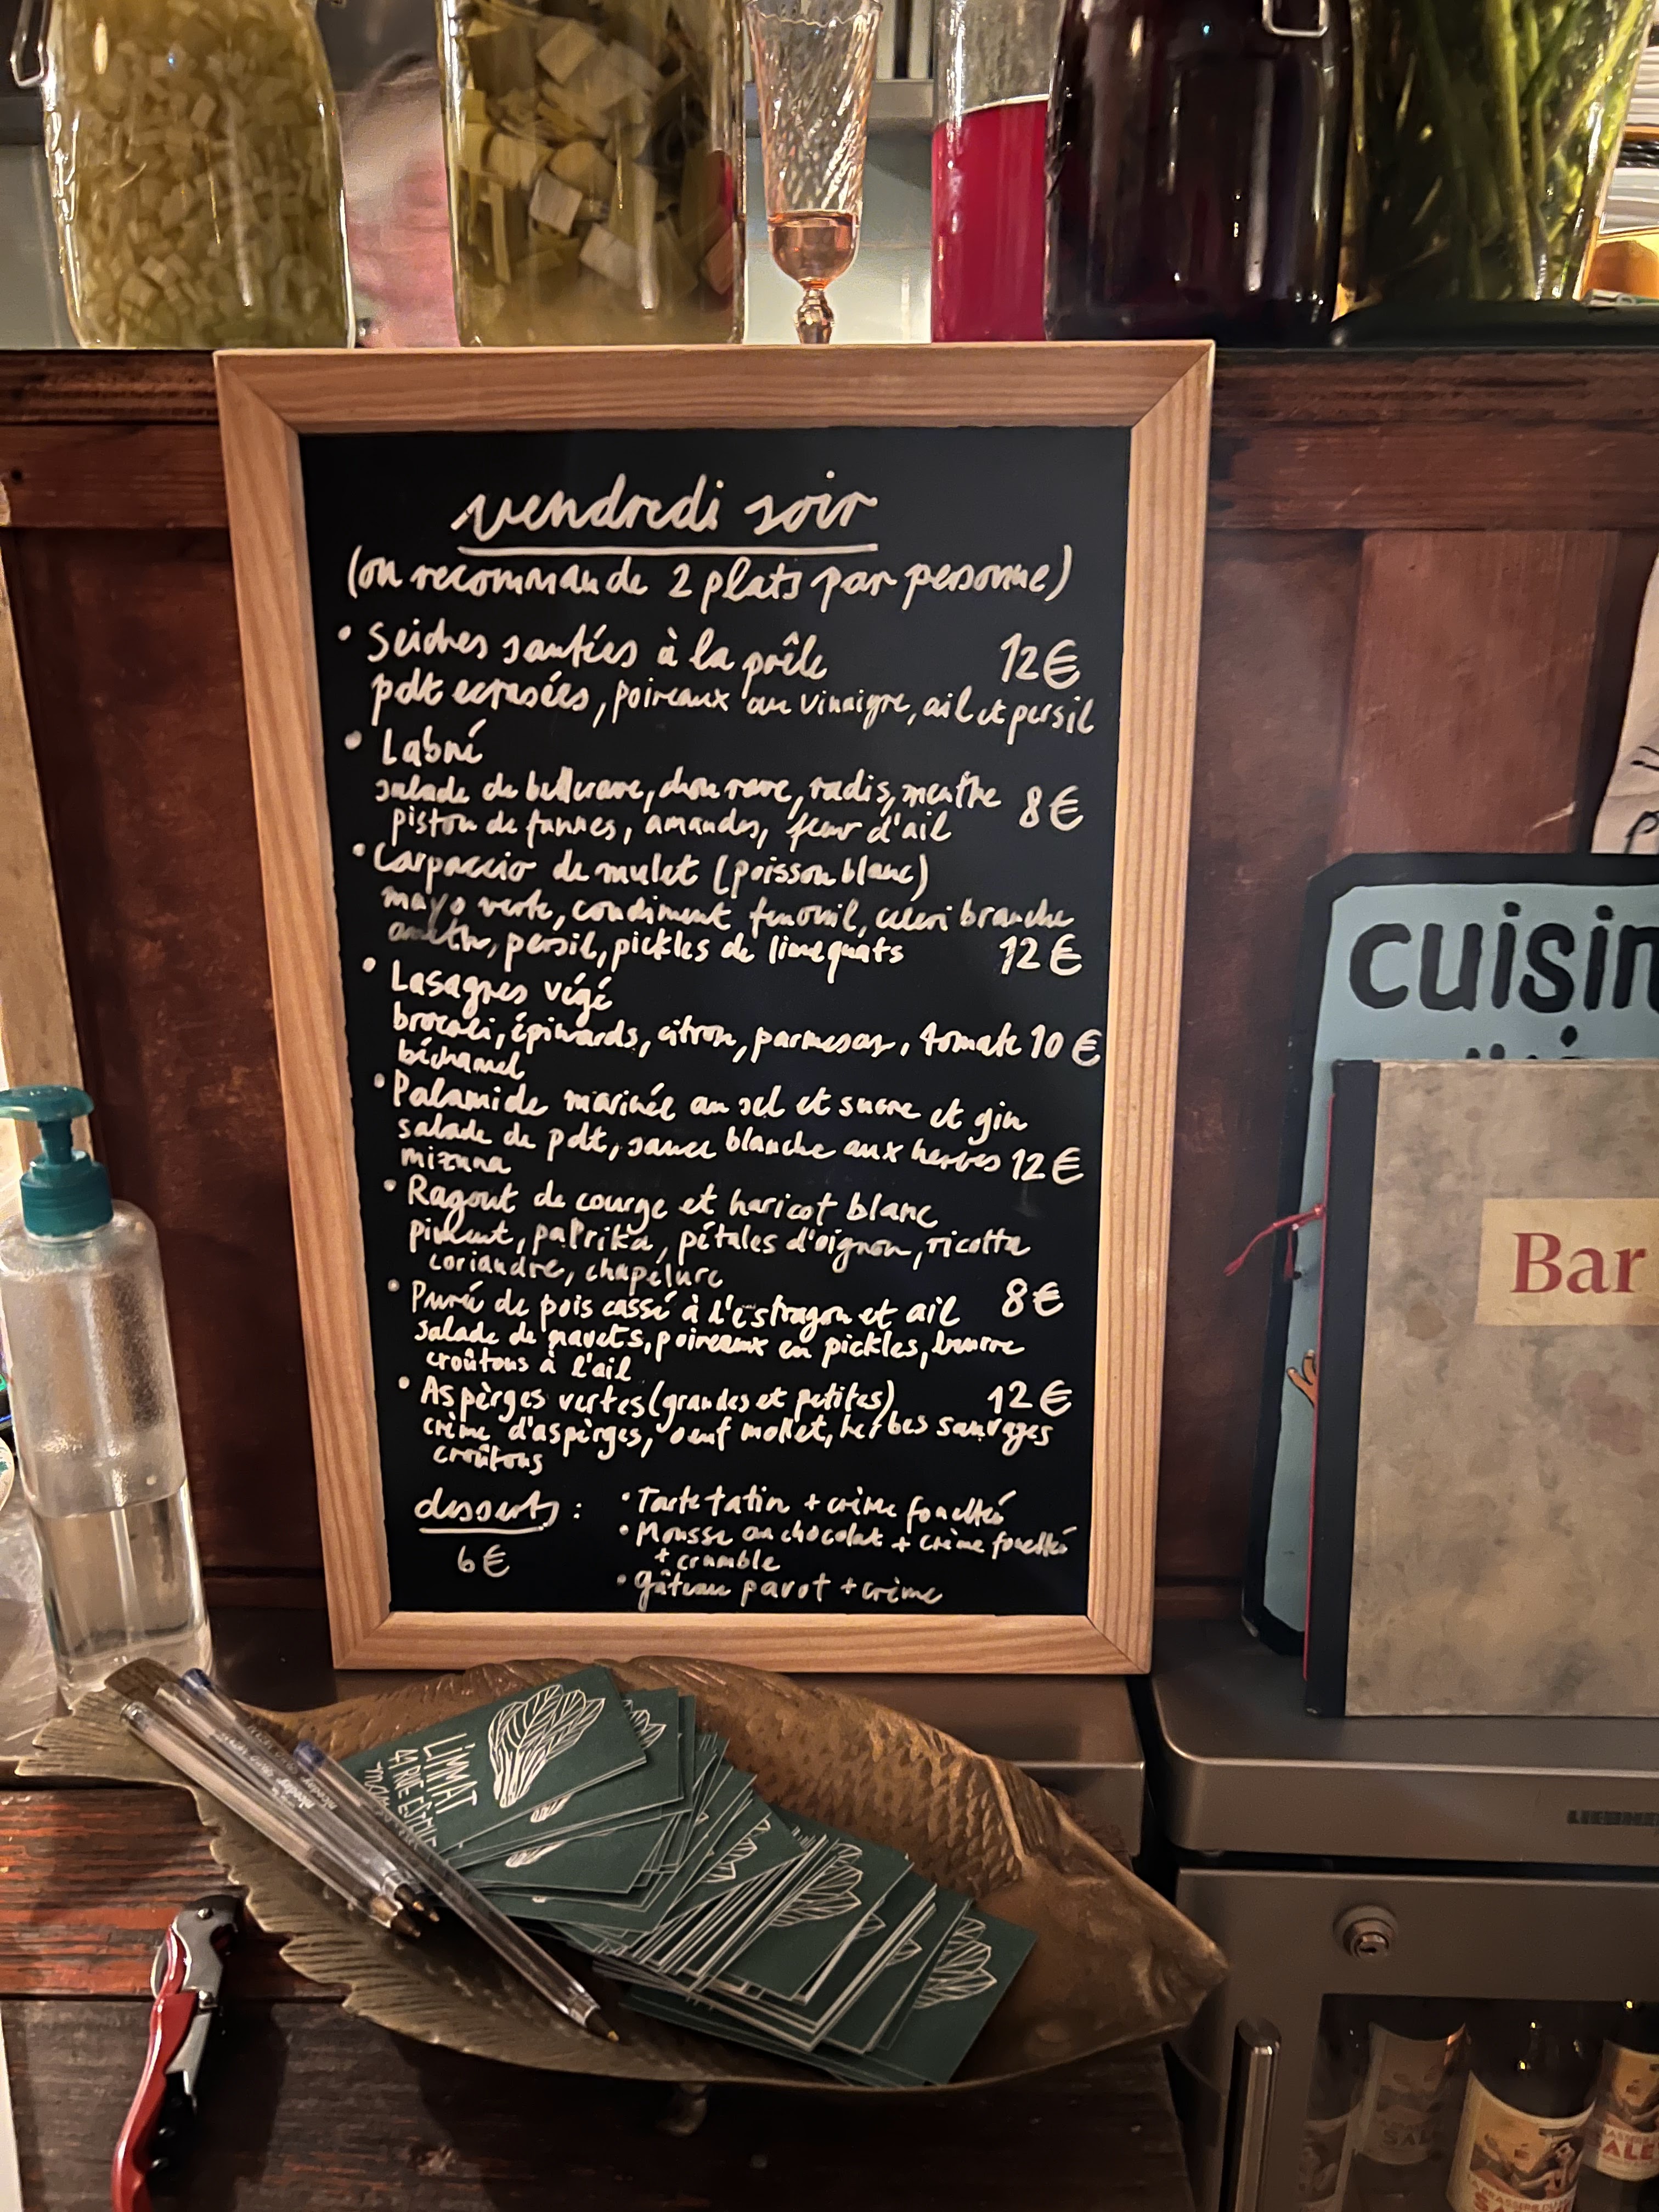 vendredi soir
(on recommande 2 plats par personne)
• Seiches sautées à la poêle 12€
pdt ecrasées, poireaux au vinaigre, ail et persil
• Labné
salade de betterave, chou rave, radis, menthe 8€
pistou de fannes, amandes, fleur d'ail
• Carpaccio de mulet (poisson blanc)
mayo verte, condiment fenouil, celeri branche
aneth, persil, pickles de limequats 12€
• Lasagnes végé
brocoli, épinards, citron, parmesan, tomate 10€
béchamel
• Palamide marinée au sel et sucre et gin
salade de pdt, sauce blanche aux herbes 12€
mizuna
• Ragout de courge et haricot blanc
piment, paprika, pétales d'oignon, ricotta
coriandre, chapelure
8€
• Purée de pois cassé à l'estragon et ail
salade de navets, poireaux en pickles, beurre
croûtons à l'ail
• Aspèrges vertes (grandes et petites) 12€
crème d'aspèrges, oeuf mollet, herbes sauvages
croûtons
desserts :
6€
• Tarte tatin + crème fouettée
• Mousse au chocolat + crème fouettée
+ crumble
• gâteau pavot + crème
cuisin
Bar
LiMMAT
41 RUE ESTELLE